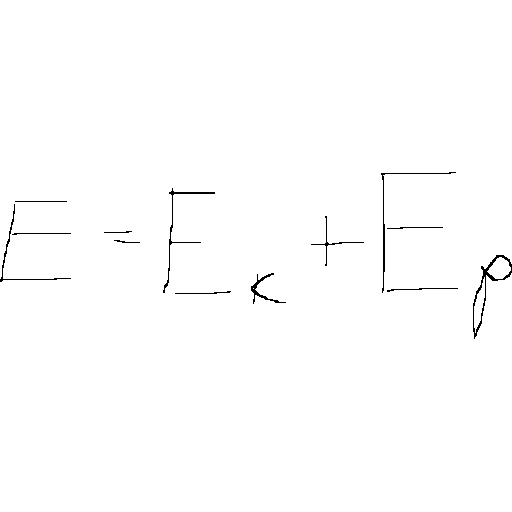 E = E_k + E_p